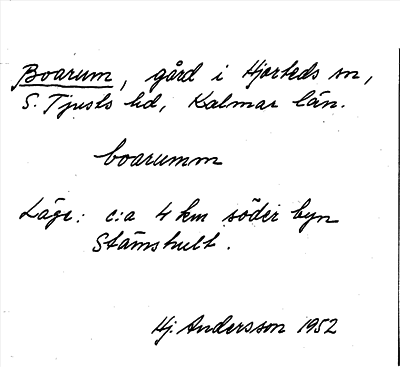 Boarum, gård i Hjorteds sn,
S. Tjusts hd, Kalmar län.
boarumm
Läge: c:a 4 km söder byn
Stämshult.
Hj. Andersson 1952